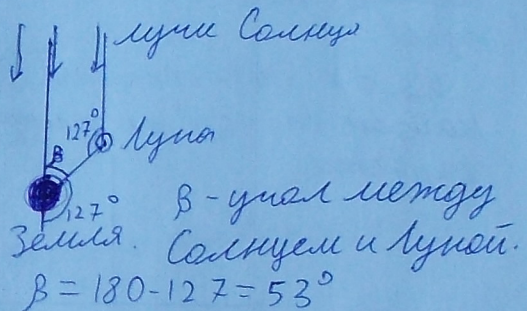 лучи Солнца
127°
Луна
β
127°
β - угол между
Земля. Солнцем и Луной.
β = 180 - 127 = 53°